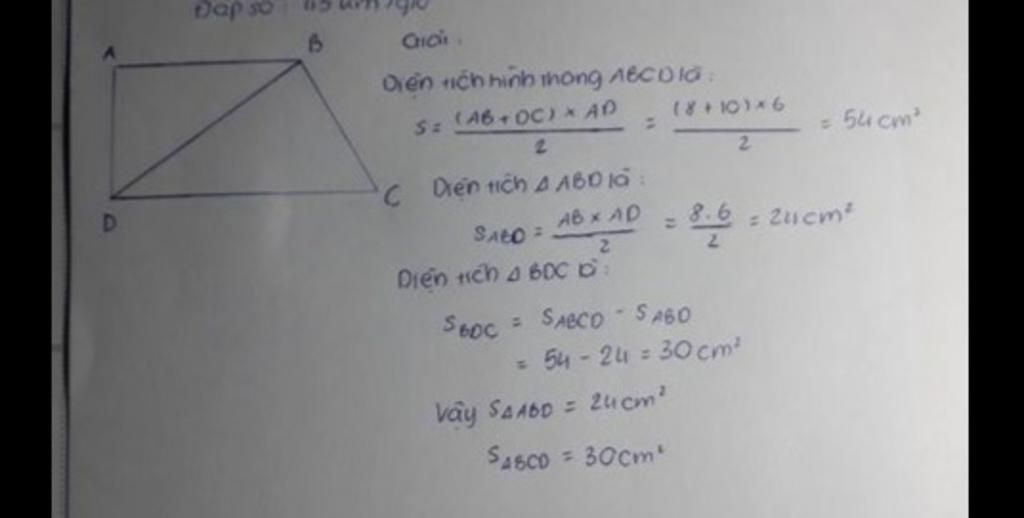 Đáp số :
A
B
D
C
Giải.
Diện tích hình thang ABCD là :
S = (AB + DC) × AD / 2 = (8 + 10) × 6 / 2 = 54 cm²
Diện tích Δ ABD là :
S ABD = AB × AD / 2 = 8.6 / 2 = 24 cm²
Diện tích Δ BDC là :
S BDC = S ABCD - S ABD
= 54 - 24 = 30 cm²
Vậy S Δ ABD = 24 cm²
S ABCD = 30 cm²